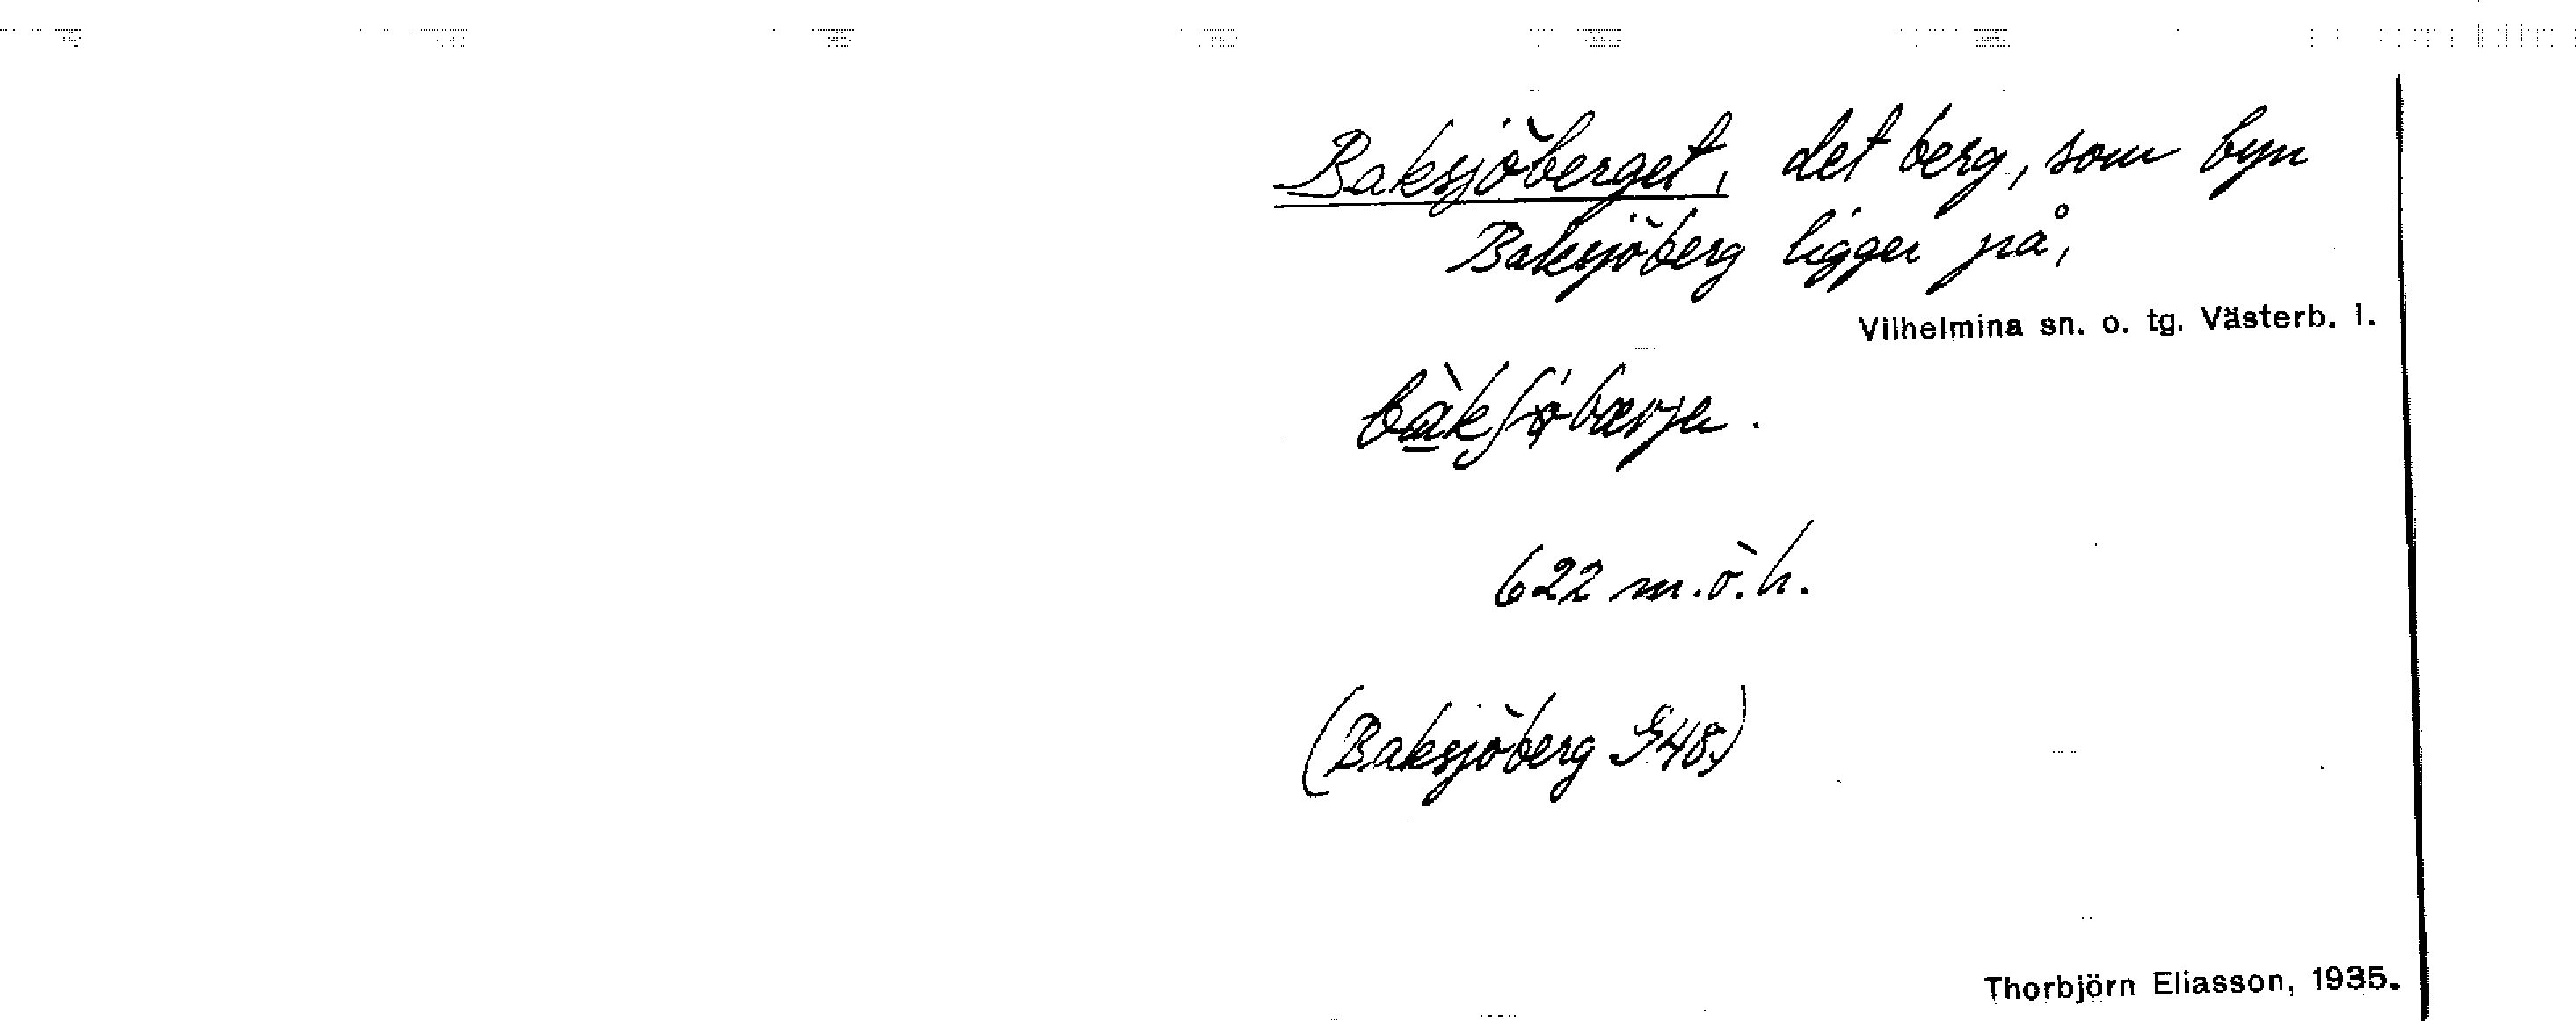 Baksjöberget, det berg, som byn
Baksjöberg ligger på,
Vilhelmina sn. o. tg. Västerb. l.
622 m.ö.h.
(Baksjöberg G48)
Thorbjörn Eliasson, 1935.